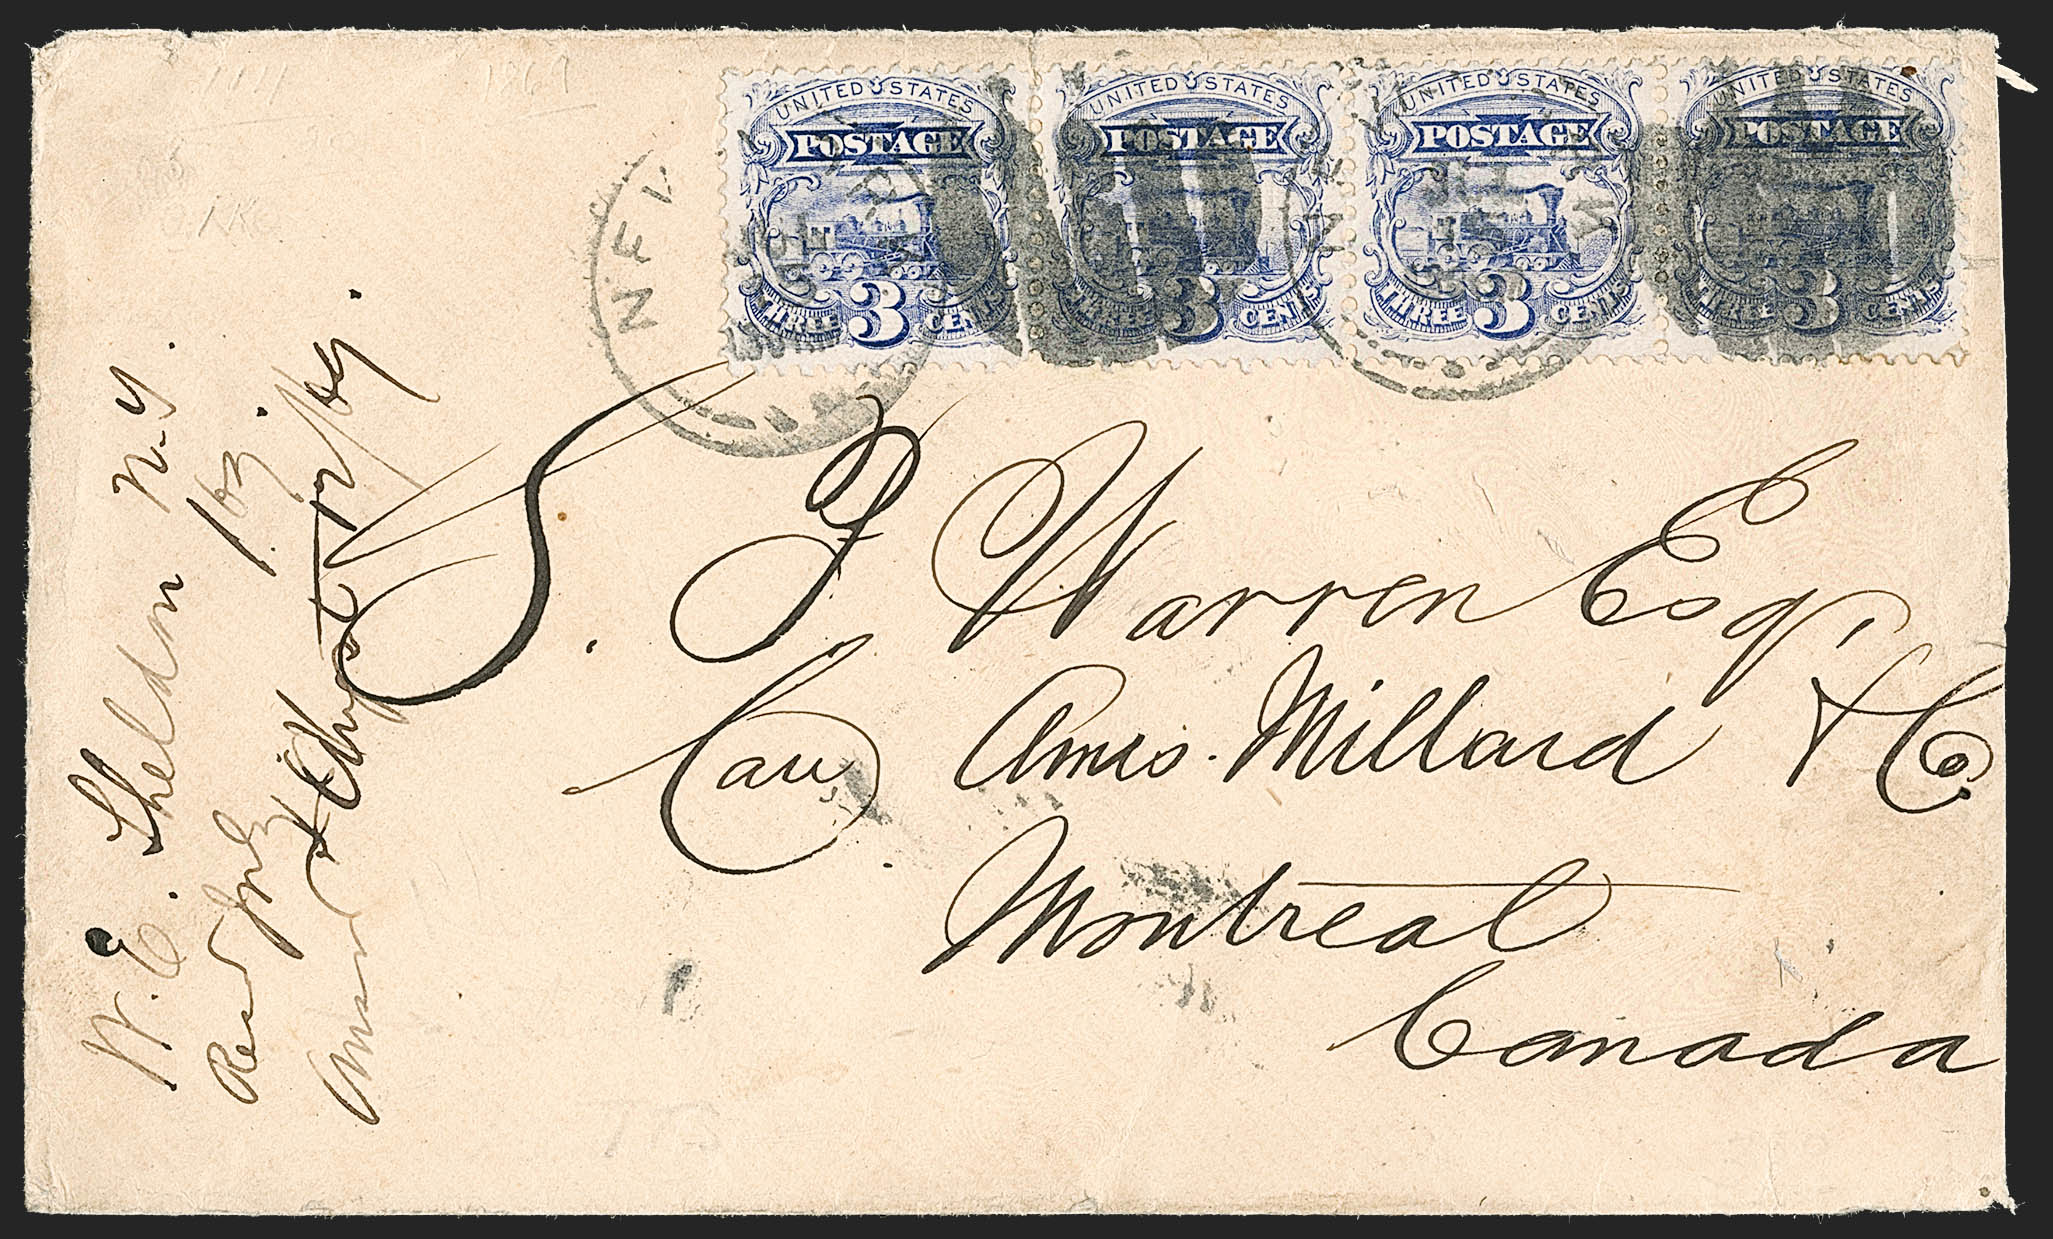 UNITED STATES POSTAGE THREE 3 CENTS
UNITED STATES POSTAGE THREE 3 CENTS
UNITED STATES POSTAGE THREE 3 CENTS
UNITED STATES POSTAGE THREE 3 CENTS
NEW
NE
S. F. Warren Esq.
Care Ames. Millard & Co.
Montreal
Canada
W. E. Sheldon N.Y.
Recd
1869